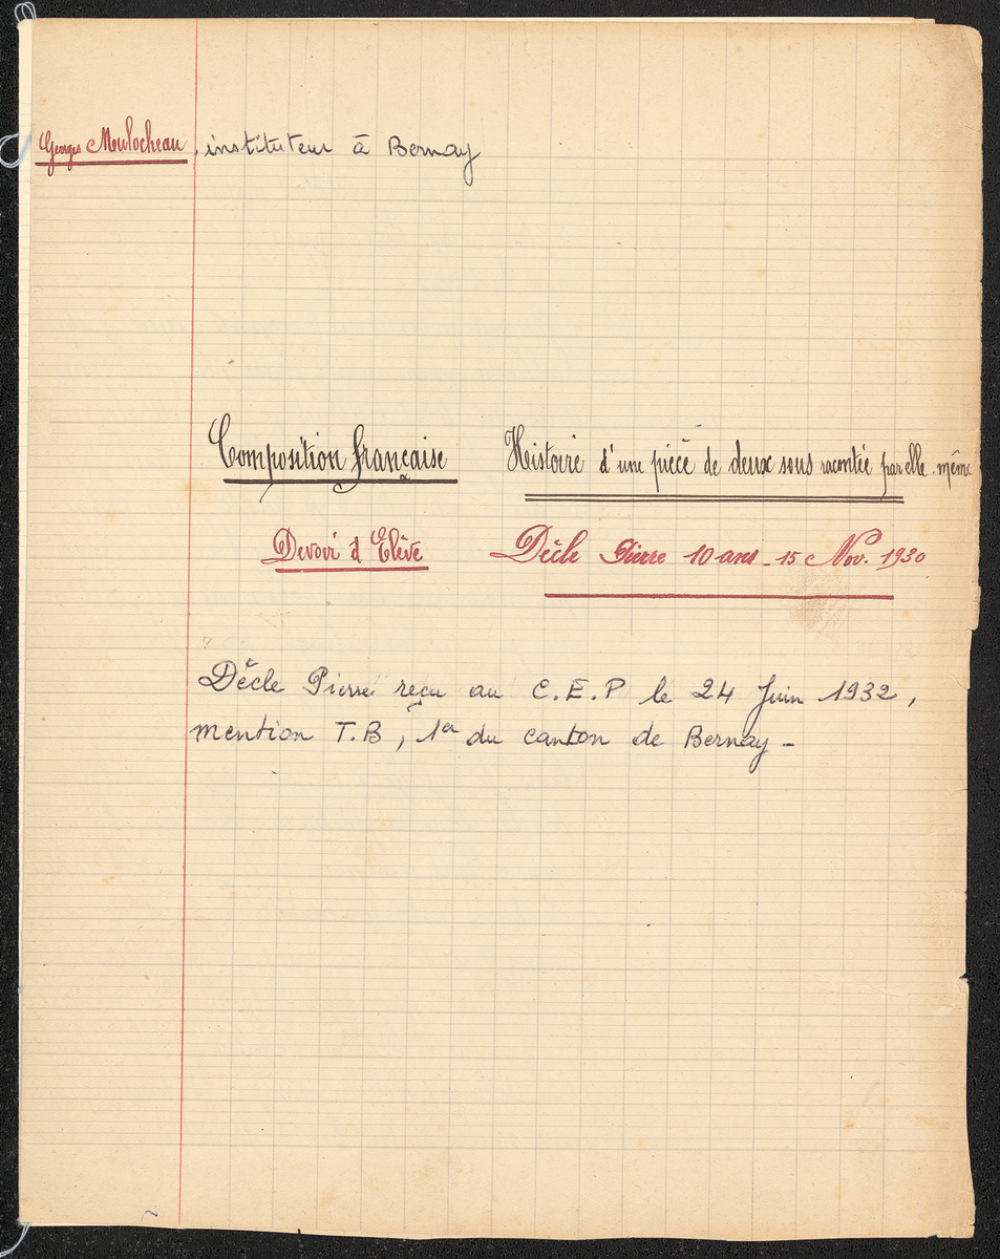 Georges Moulocheau, instituteur à Bernay
Composition française Histoire d'une pièce de deux sous racontée par elle-même
Devoir d'Elève Dècle Pierre 10 ans - 15 Nov. 1930
Dècle Pierre reçu au C.E.P le 24 Juin 1932,
mention T.B, 1er du canton de Bernay -